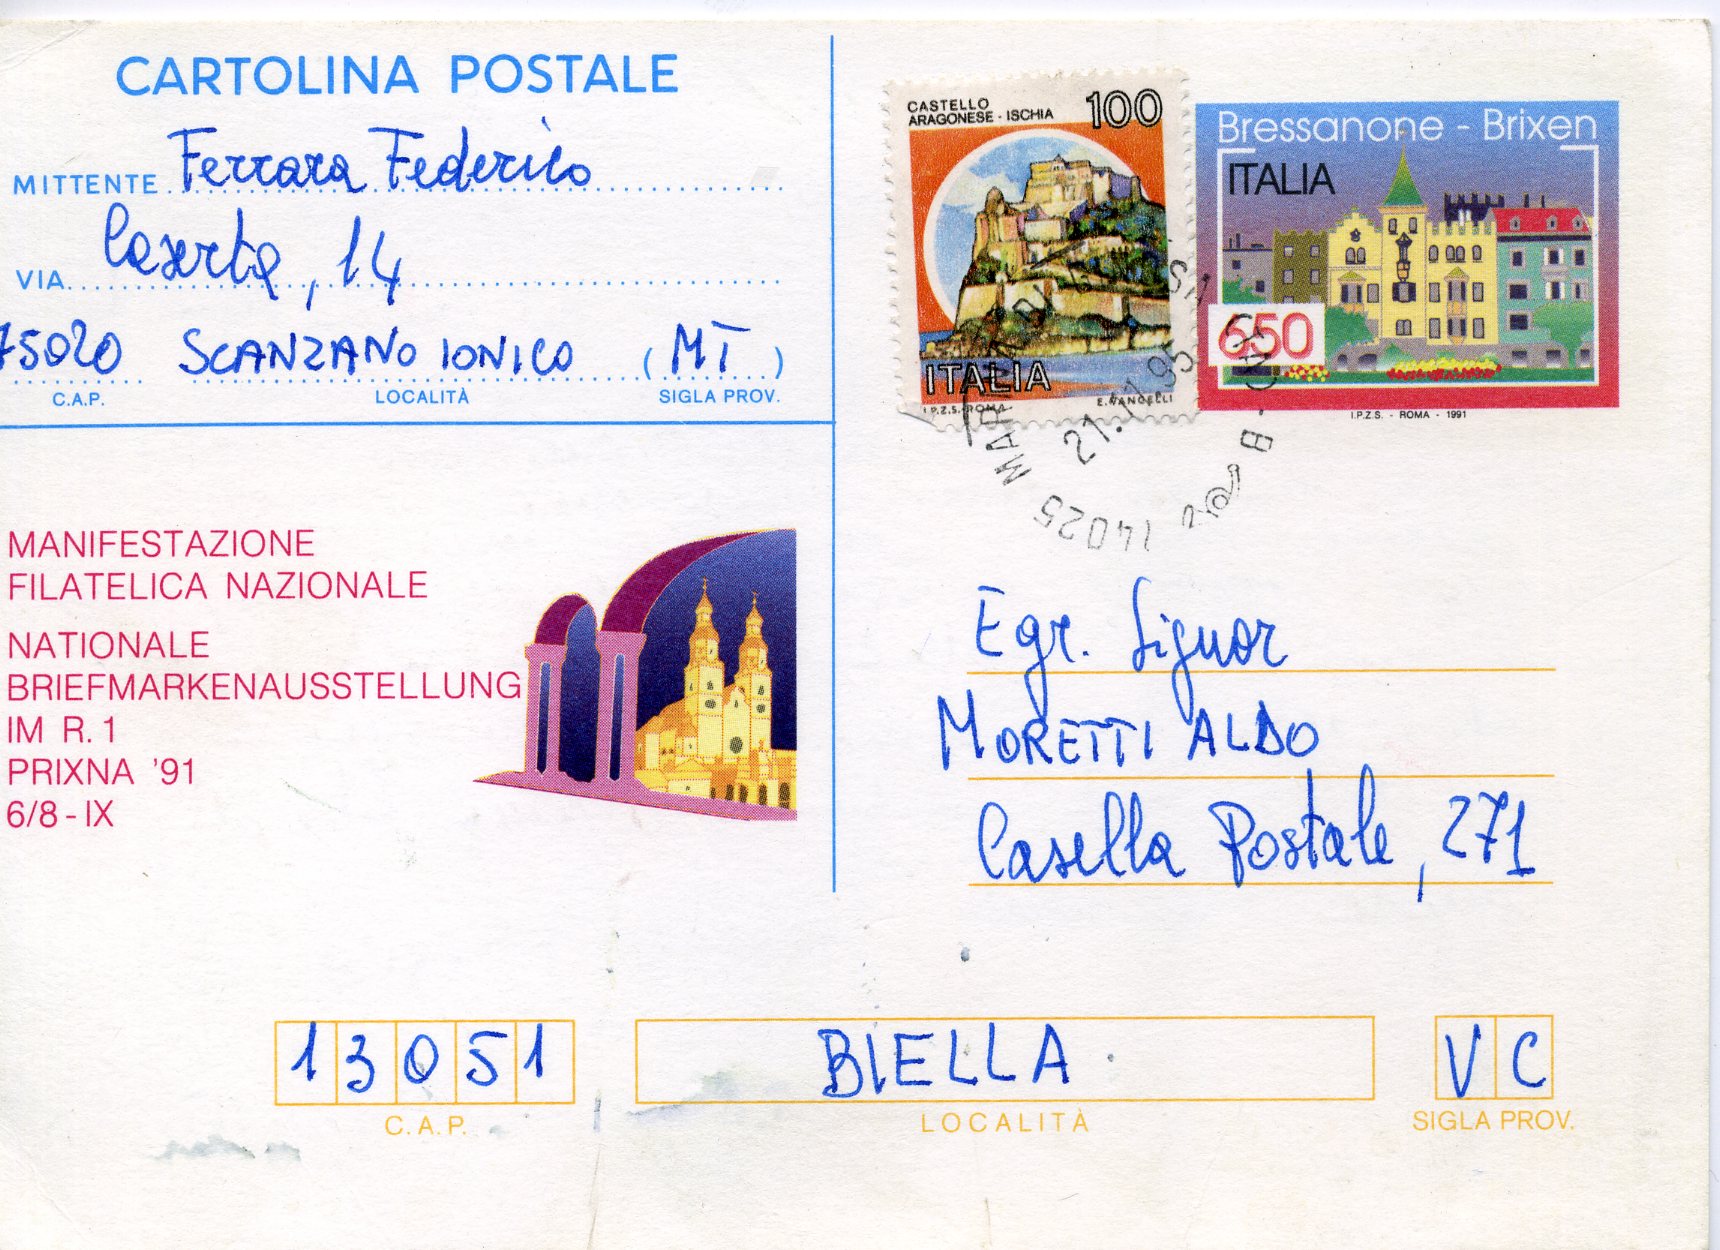 CARTOLINA POSTALE
MITTENTE Ferrara Federico
VIA Caserta, 14
75020 SCANZANO IONICO (MT)
C.A.P. LOCALITÀ SIGLA PROV.
MANIFESTAZIONE
FILATELICA NAZIONALE
NATIONALE
BRIEFMARKENAUSSTELLUNG
IM R. 1
PRIXNA '91
6/8 - IX
CASTELLO
ARAGONESE - ISCHIA 100
ITALIA
I.P.Z.S. - ROMA E. VANGELLI
Bressanone - Brixen
ITALIA
650
I.P.Z.S. - ROMA - 1991
21.11.95
14025
Egr. Signor
MORETTI ALDO
Casella Postale, 271
13051 BIELLA VC
C.A.P. LOCALITÀ SIGLA PROV.